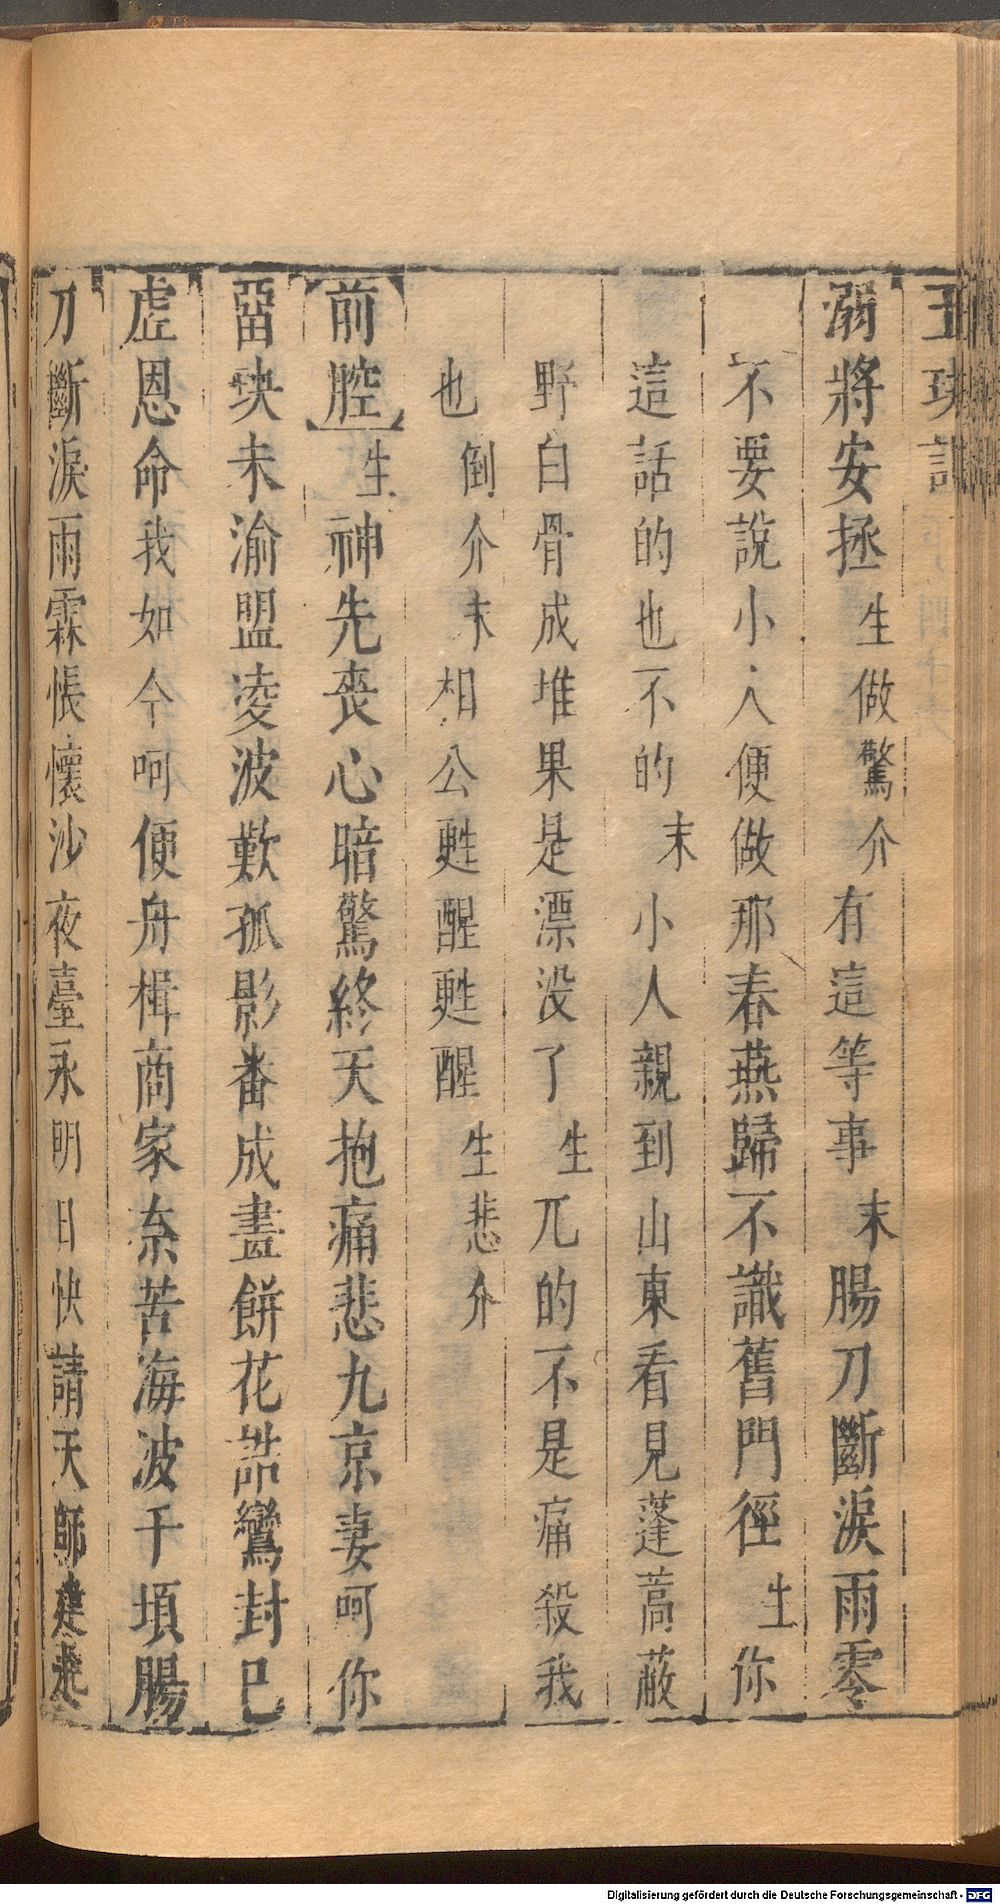 玉玦記
溺將安拯生做驚介有這等事末腸刀斷淚雨零
不要說小人便做那春燕歸不識舊門徑生你
這話的也不的末小人親到山東看見蓬蒿蔽
野白骨成堆果是漂没了生兀的不是痛殺我
也倒介末相公甦醒甦醒生悲介
前腔生神先喪心暗驚終天抱痛悲九京妻呵你
畱玦未渝盟凌波歎孤影番成畫餅花誥鸞封巳
虛恩命我如今呵便舟楫商家柰苦海波千頃腸
刀斷淚雨霖悵懷沙夜臺永明日快請天師建
Digitalisierung gefördert durch die Deutsche Forschungsgemeinschaft - DFG